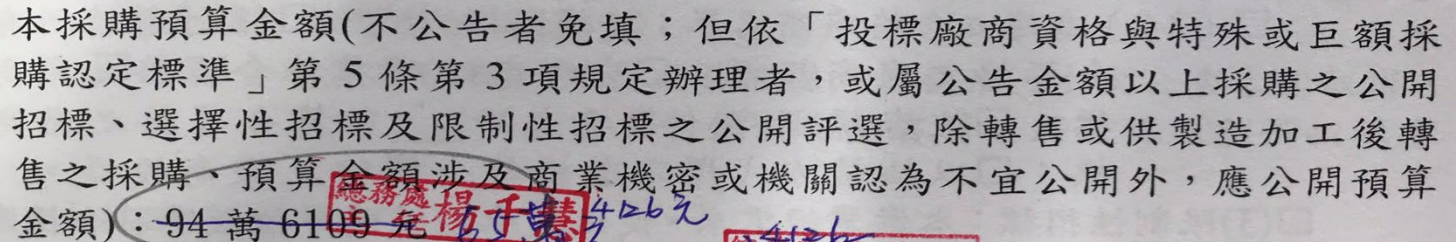 本採購預算金額(不公告者免填；但依「投標廠商資格與特殊或巨額採
購認定標準」第 5 條第 3 項規定辦理者，或屬公告金額以上採購之公開
招標、選擇性招標及限制性招標之公開評選，除轉售或供製造加工後轉
售之採購、預算金額涉及商業機密或機關認為不宜公開外，應公開預算
金額)：94 萬 6109 元 萬 4126元
總務處
楊千慧
4126